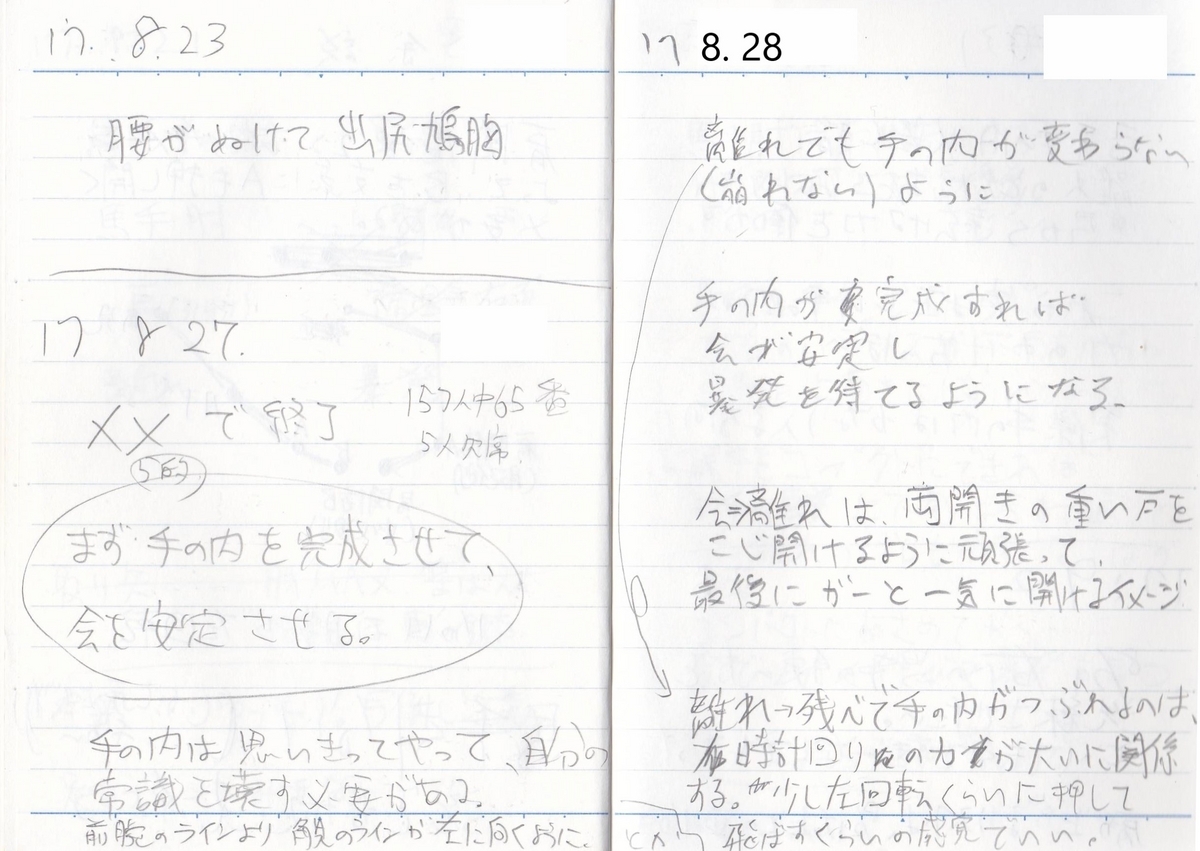 17. 8. 23
腰がぬけて 出尻鳩胸
17 8 27.
XX で終了
157人中65番
5人欠席.
5的
まず 手の内を完成させて、
会を安定させる。
手の内は思いきってやって、自分の
常識を壊す必要がある。
前腕のラインより 角見のラインが左に向くように.
17 8. 28
離れでも 手の内が変わらない
(崩れない) ように
手の内が 完成すれば
会が安定し
暴発を待てるようになる。
会⇒離れは、両開きの重い戸を
こじ開けるように頑張って、
最後にガーと一気に開けるイメージ
離れ→残心で手の内がつぶれるのは、
時計回りの力が大いに関係
する。少し左回転くらいに押して
飛ばすくらいの感覚でいい。